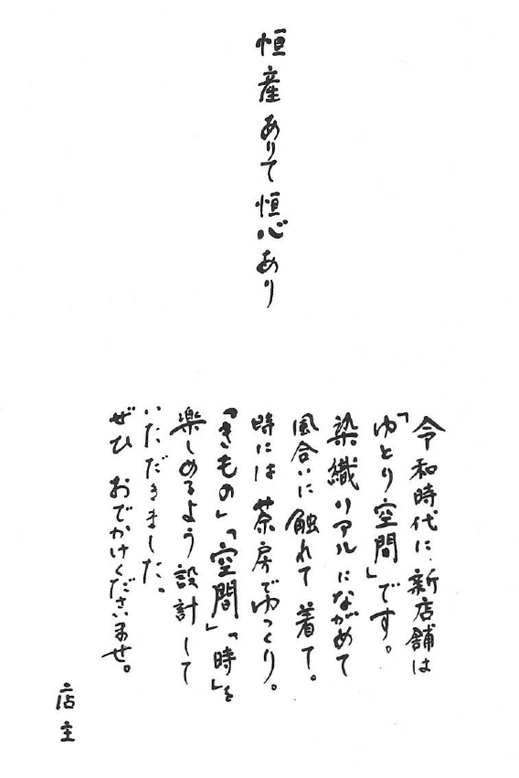 恒産ありて恒心あり
令和時代に新店舗は
「ゆとり空間」です。
染織リアルにながめて
風合いに触れて着て。
時には茶房でゆっくり。
「きもの」「空間」「時」を
楽しめるよう設計して
いただきました。
ぜひ おでかけくださいませ。
店主